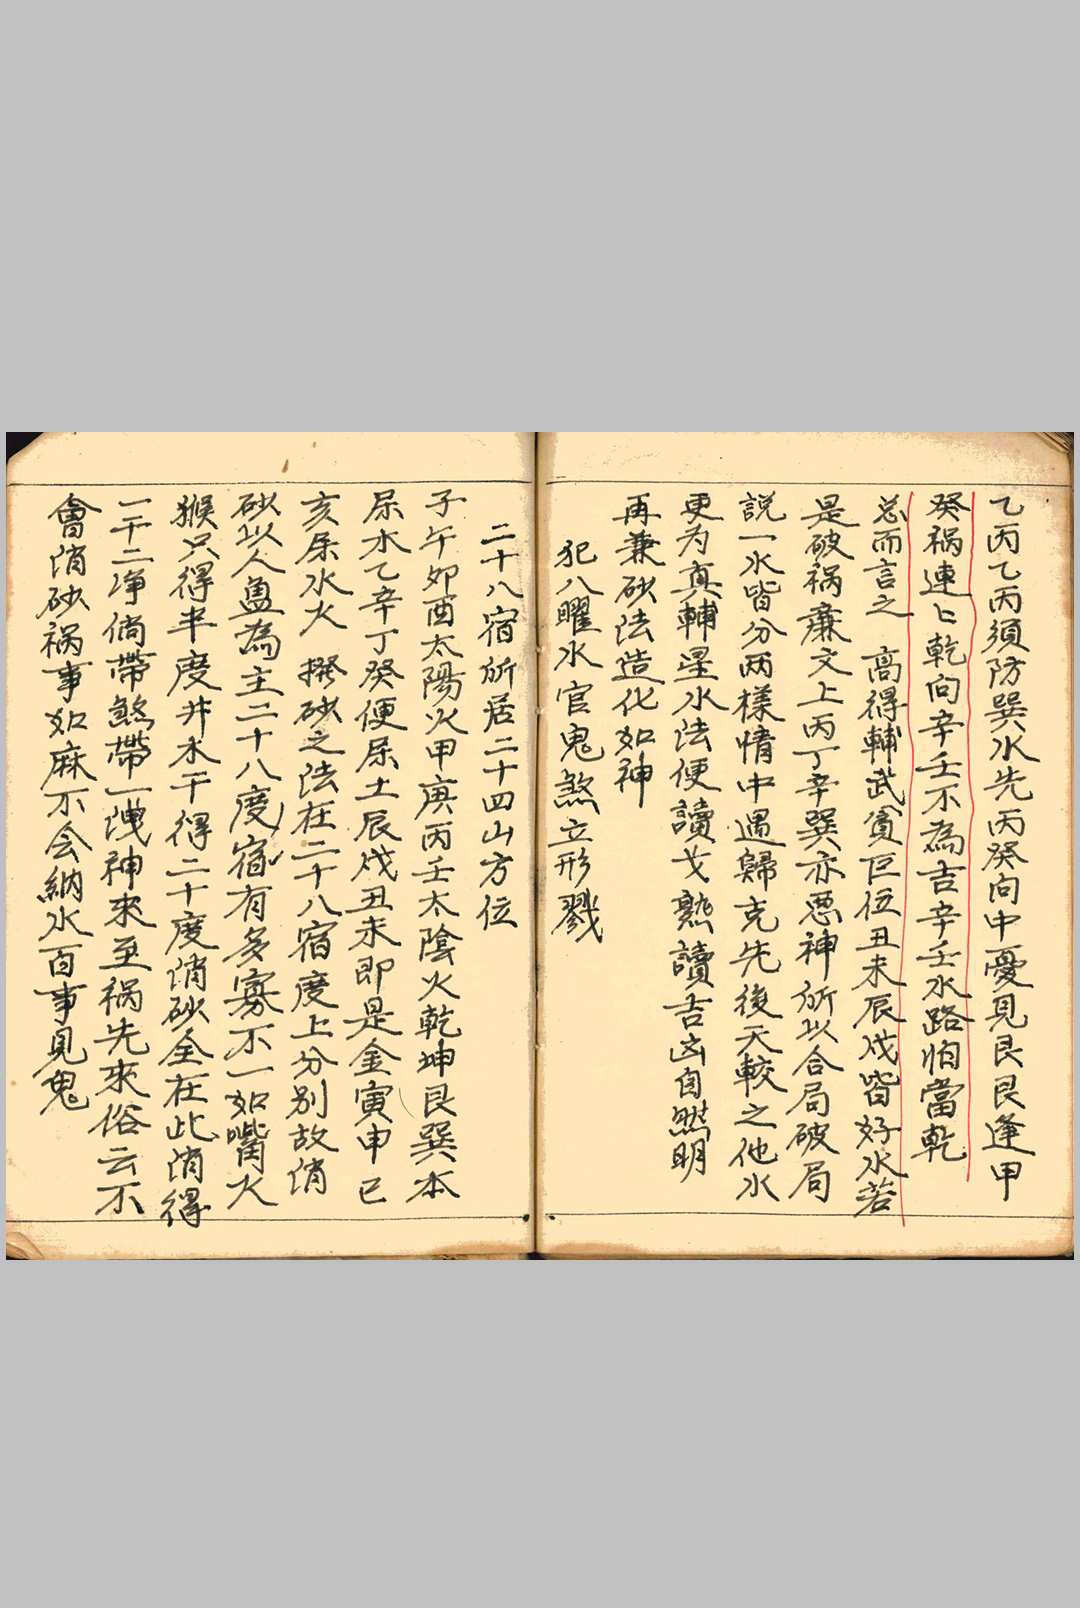 乙丙乙丙須防巽水先丙癸向中憂見艮艮逢甲
癸祸連匕乾向辛壬不為吉辛壬水路怕當乾
总而言之 高得輔武貪巨位丑未辰戌皆好水若
是破祸廉文上丙丁辛巽亦悪神所以合局破局
説一水皆分两樣情中遇歸克先後天較之他水
更为真輔星水法便讀戈熟讀吉凶自然明
再兼砂法造化如神
犯八曜水官鬼煞立形戮
二十八宿所居二十四山方位
子午卯酉太陽火甲庚丙壬太陰火乾坤艮巽本
属水乙辛丁癸便属土辰戌丑未即是金寅申巳
亥属水火 撥砂之法在二十八宿度上分别故消
砂以人盘為主二十八度宿有多寡不一如嘴火
猴只得半度井木干得二十度消砂全在此消得
一干二净倘帶煞帶一洩神來至祸先來俗云不
會消砂祸事如麻不会納水百事見鬼